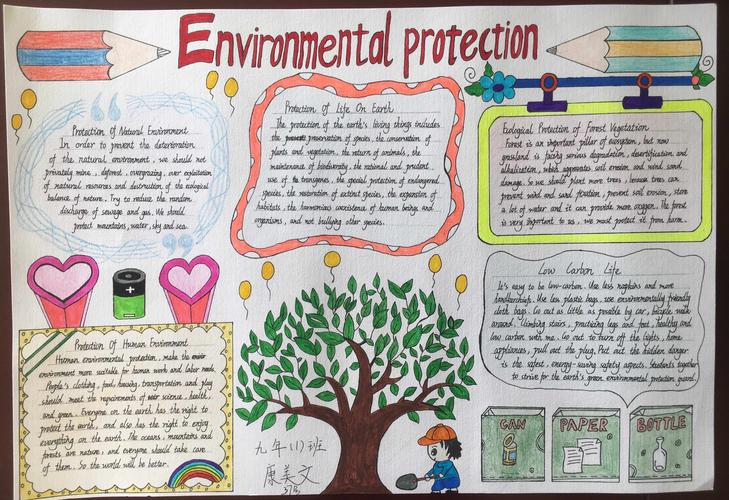 Environmental protection
Protection Of Natural Environment
In order to prevent the deterioration
of the natural environment, we should not
privately mine, deforest, overgrazing, over exploitation
of natural resources and destruction of the ecological
balance of nature. Try to reduce the random
discharge of sewage and gas. We should
protect mountains, water, sky and sea.
Protection Of Life On Earth
The protection of the earth's living things includes
the preservation of species, the conservation of
plants and vegetation, the return of animals, the
maintenance of biodiversity, the rational and prudent
use of the transgenes, the special protection of endangered
species, the restoration of extinct species, the expansion of
habitats, the harmonious coexistence of human beings and
organisms, and not bullying other species.
Ecological Protection of Forest Vegetation
Forest is an important pillar of ecosystem, but now
grassland is facing serious degradation, desertification and
alkalization, which aggravates soil erosion and wind sand
damage. So we should plant more trees, because trees can
prevent wind and sand fixation, prevent soil erosion, store
a lot of water and it can provide more oxygen. The forest
is very important to us, we must protect it from harm.
Protection Of Human Environment
Human environmental protection, make the
environment more suitable for human work and labor needs.
People's clothing, food, housing, transportation and play
should meet the requirements of science, health,
and green. Everyone on the earth has the right to
protect the earth, and also has the right to enjoy
everything on the earth. The oceans, mountains and
forests are nature, and everyone should take care
of them. So the world will be better.
Low Carbon Life
It's easy to be low-carbon. Use less napkins and more
handkerchiefs. Use less plastic bags, use environmentally friendly
cloth bags. Go out as little as possible by car, bicycle walk
around. Climbing stairs, practicing legs and feet, healthy and
low carbon with me. Go out to turn off the lights, home
appliances, pull out the plug. Put out the hidden danger
is the safest, energy-saving safety aspects. Students together
to strive for the earth's green environmental protection guard.
九年(1)班
康美文
37号
CAN
PAPER
BOTTLE